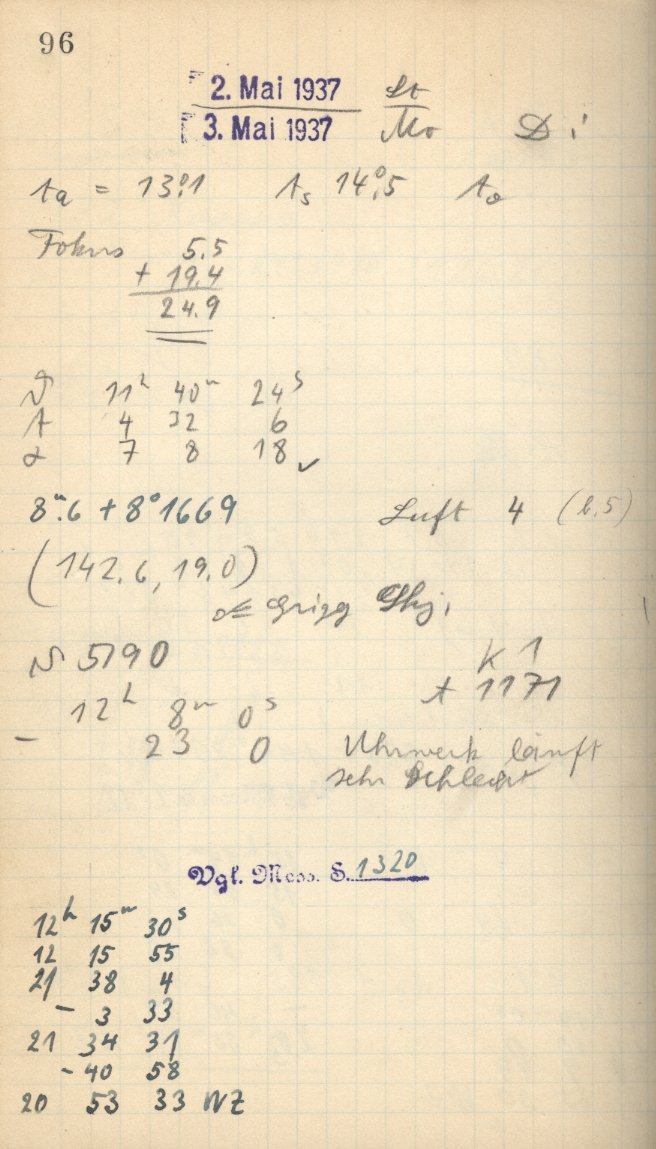 96
2. Mai 1937 St
3. Mai 1937 Mo Di
ta = 13°.1 ts 14°.5 to
Fokus 5.5
+ 19.4
24.9
ϑ 11h 40m 24s
t 4 32 6
α 7 8 18 ✓
8m.6 + 8°1669 Luft 4 (b.5)
(142.6, 19.0)
Grigg Skj.
N 5790 K 1
12h 8m 0s t 1171
- 23 0 Uhrwerk läuft
sehr schlecht
Vgl. Mess. S. 1320
12h 15m 30s
12 15 55
21 38 4
- 3 33
21 34 31
- 40 58
20 53 33 WZ